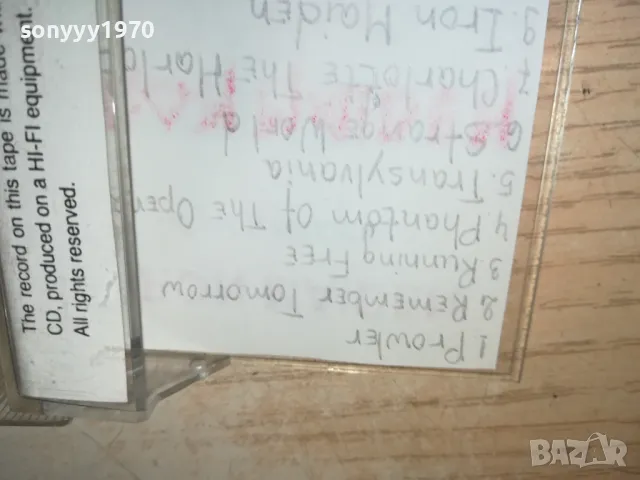 sonyyy1970
The record on this tape is made
CD, produced on a HI-FI equipment.
All rights reserved.
1 Prowler
2. Remember Tomorrow
3. Running Free
4. Phantom Of The Oper
5. Transylvania
6. Strange World
7. Charlotte The Harlo
9. Iron Maiden
BAZAR